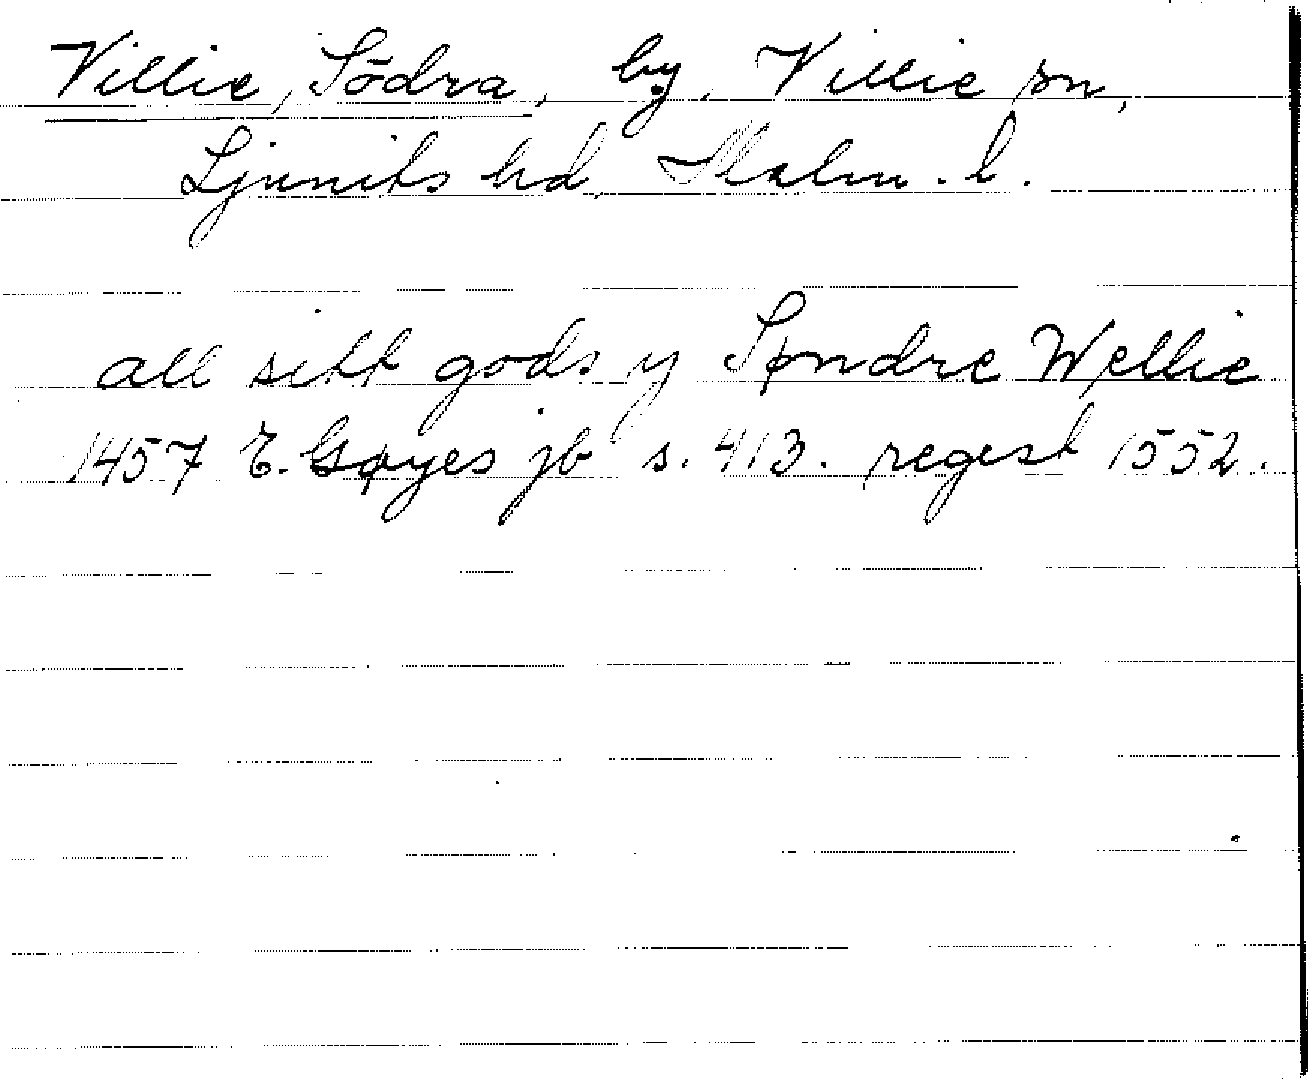 Villie, Södra, by, Villie sn,
Ljunits hd, Malm. l.
all sitt gods y Søndre Wellie
1457 E. Gøyes jb s. 413. regest 1552.